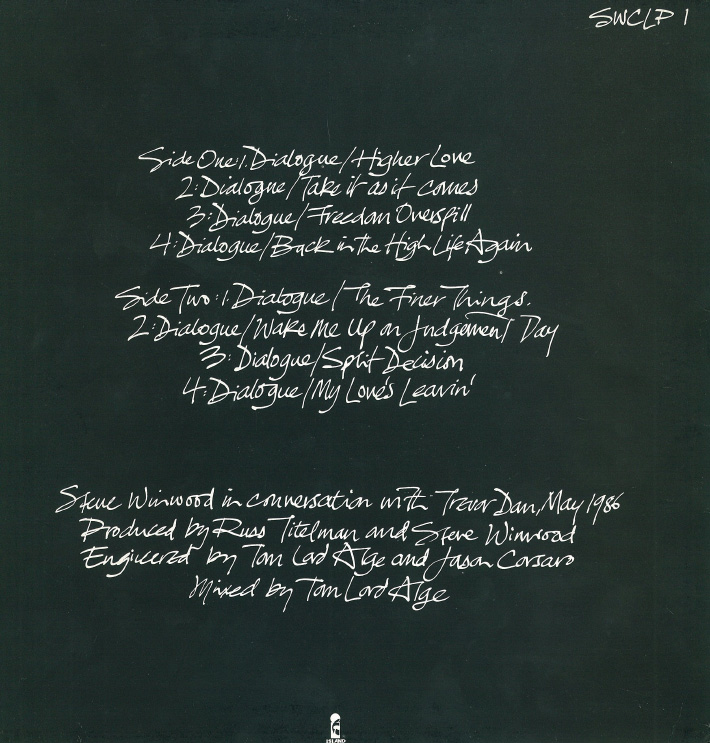 SWCLP 1
Side One:1. Dialogue/Higher Love
2:Dialogue/Take it as it comes
3:Dialogue/Freedom Overspill
4:Dialogue/Back in the High Life Again
Side Two:1. Dialogue/The Finer Things.
2:Dialogue/Wake Me Up on Judgement Day
3: Dialogue/Split Decision
4:Dialogue/My Love's Leavin'
Steve Winwood in conversation with Trevor Dan, May 1986
Produced by Russ Titelman and Steve Winwood
Engineered by Tom Lord Alge and Jason Corsaro
Mixed by Tom Lord Alge
ISLAND